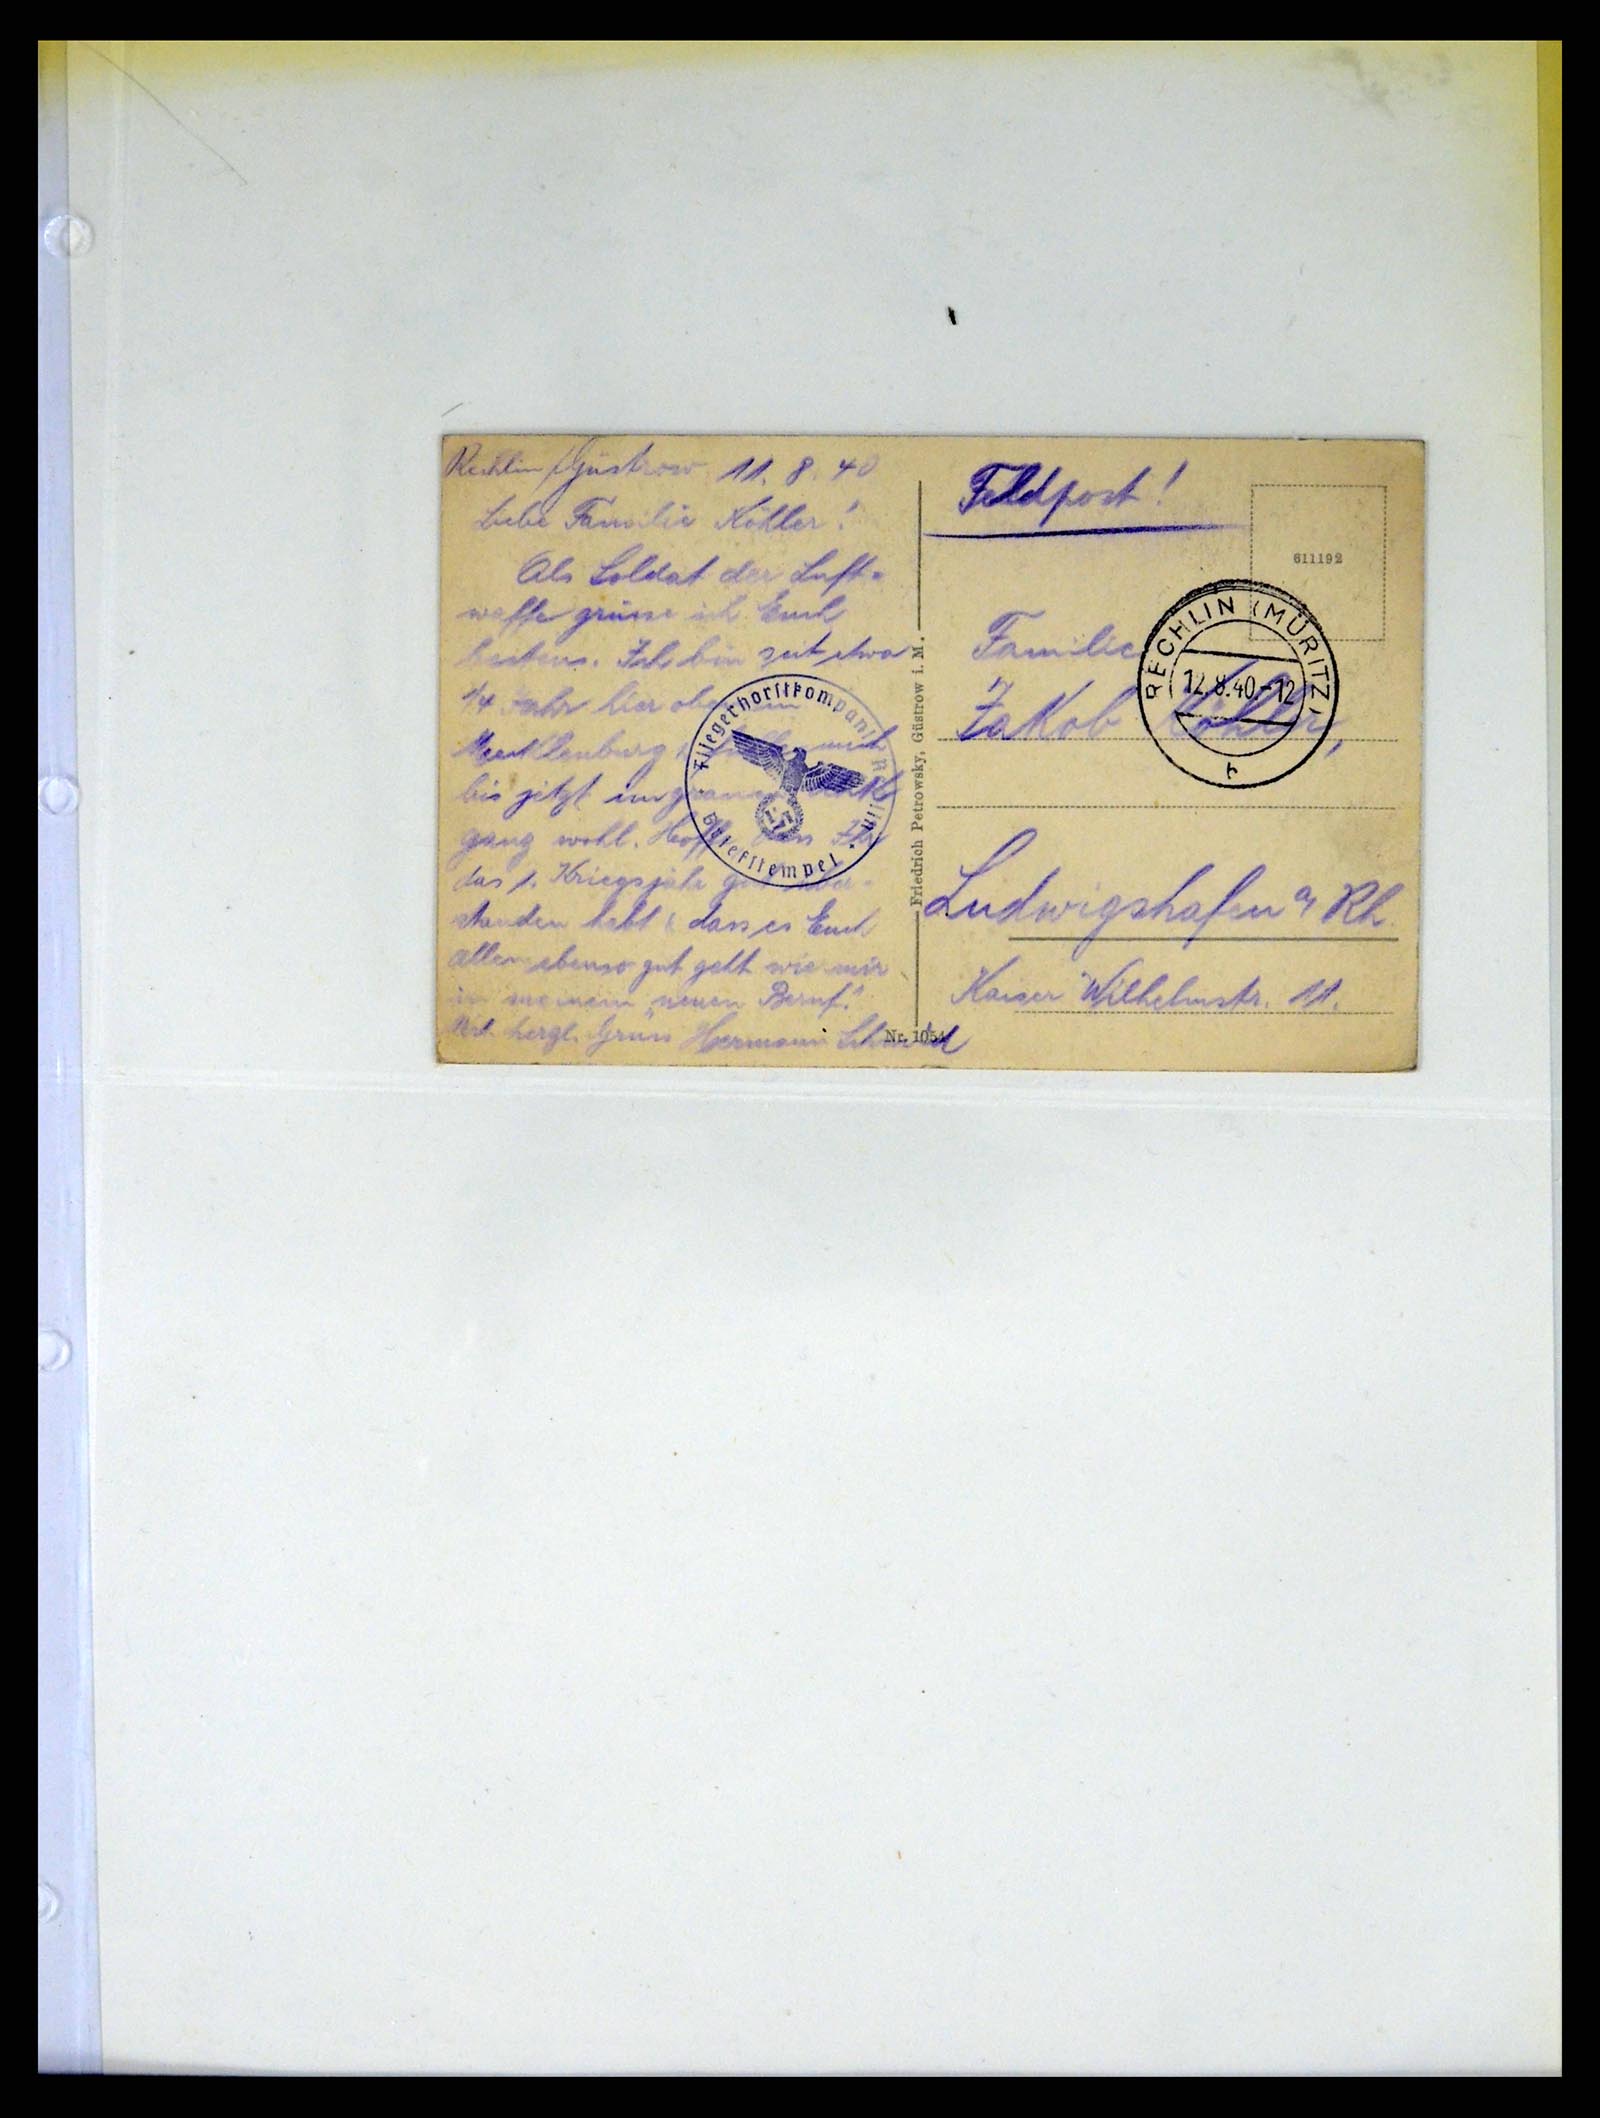 Rechlin / Güstrow 11. 8. 40
Liebe Familie Köhler!
Als Soldat der Luft=
waffe grüsse ich Euch
bestens. Ich bin seit etwa
1/4 Jahr hier oben in
Mecklenburg & fühle mich
bis jetzt
ganz wohl. Hoffe dass Ihr
das 1. Kriegsjahr gut über=
standen habt & dass es Euch
allen ebenso gut geht wie mir
in meinem „neuen Beruf."
Mit herzl. Gruss Hermann
Fliegerhorstkompanie Rechlin
Briefstempel
Friedrich Petrowsky, Güstrow i. M.
Nr. 1054
Feldpost!
611192
RECHLIN (MÜRITZ)
12.8.40.-12
b
Familie
Jakob Köhler,
Ludwigshafen a/ Rh.
Kaiser Wilhelmstr. 11.